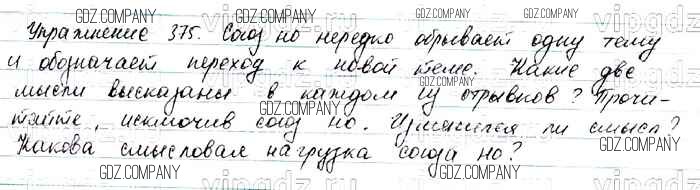 GDZ.COMPANY GDZ.COMPANY GDZ.COMPANY
Упражнение 375. Союз но нередко обрывает одну тему
и обозначает переход к новой теме. Какие две
GDZ.COMPANY GDZ.COMPANY
мысли высказаны в каждом из отрывков? Прочи-
GDZ.COMPANY
тайте, исключив союз но. Изменился ли смысл?
GDZ.COMPANY GDZ.COMPANY
Какова смысловая нагрузка союза но?
GDZ.COMPANY GDZ.COMPANY GDZ.COMPANY
vipgdz.ru